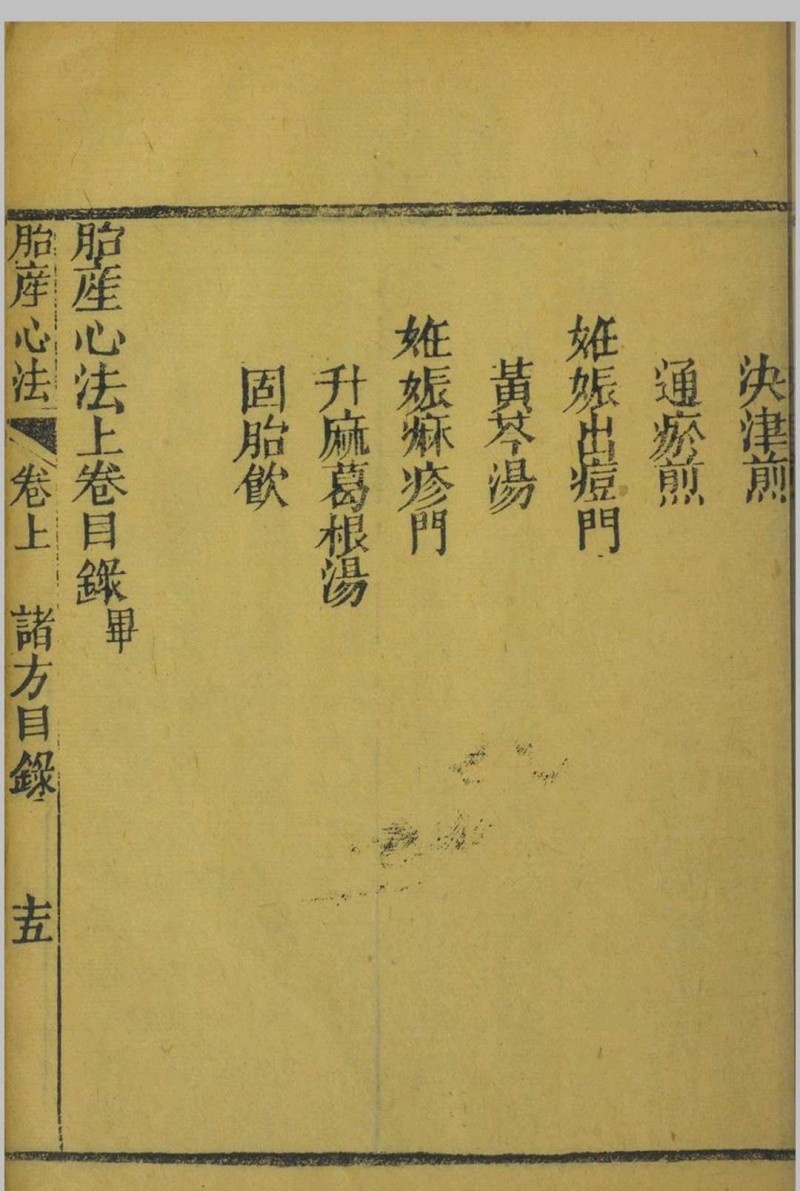 決津煎
通瘀煎
姙娠出痘門
黃芩湯
姙娠痳疹門
升麻葛根湯
固胎飲
胎產心法上卷目錄畢
胎產心法 卷上 諸方目錄 十五